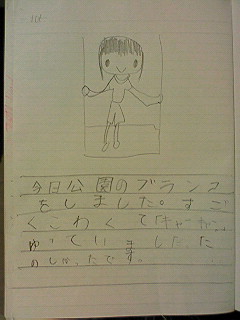 今日公園のブランコ
をしました。すご
くこわくて「キャーキャー」
ゆっていました。た
のしかったです。